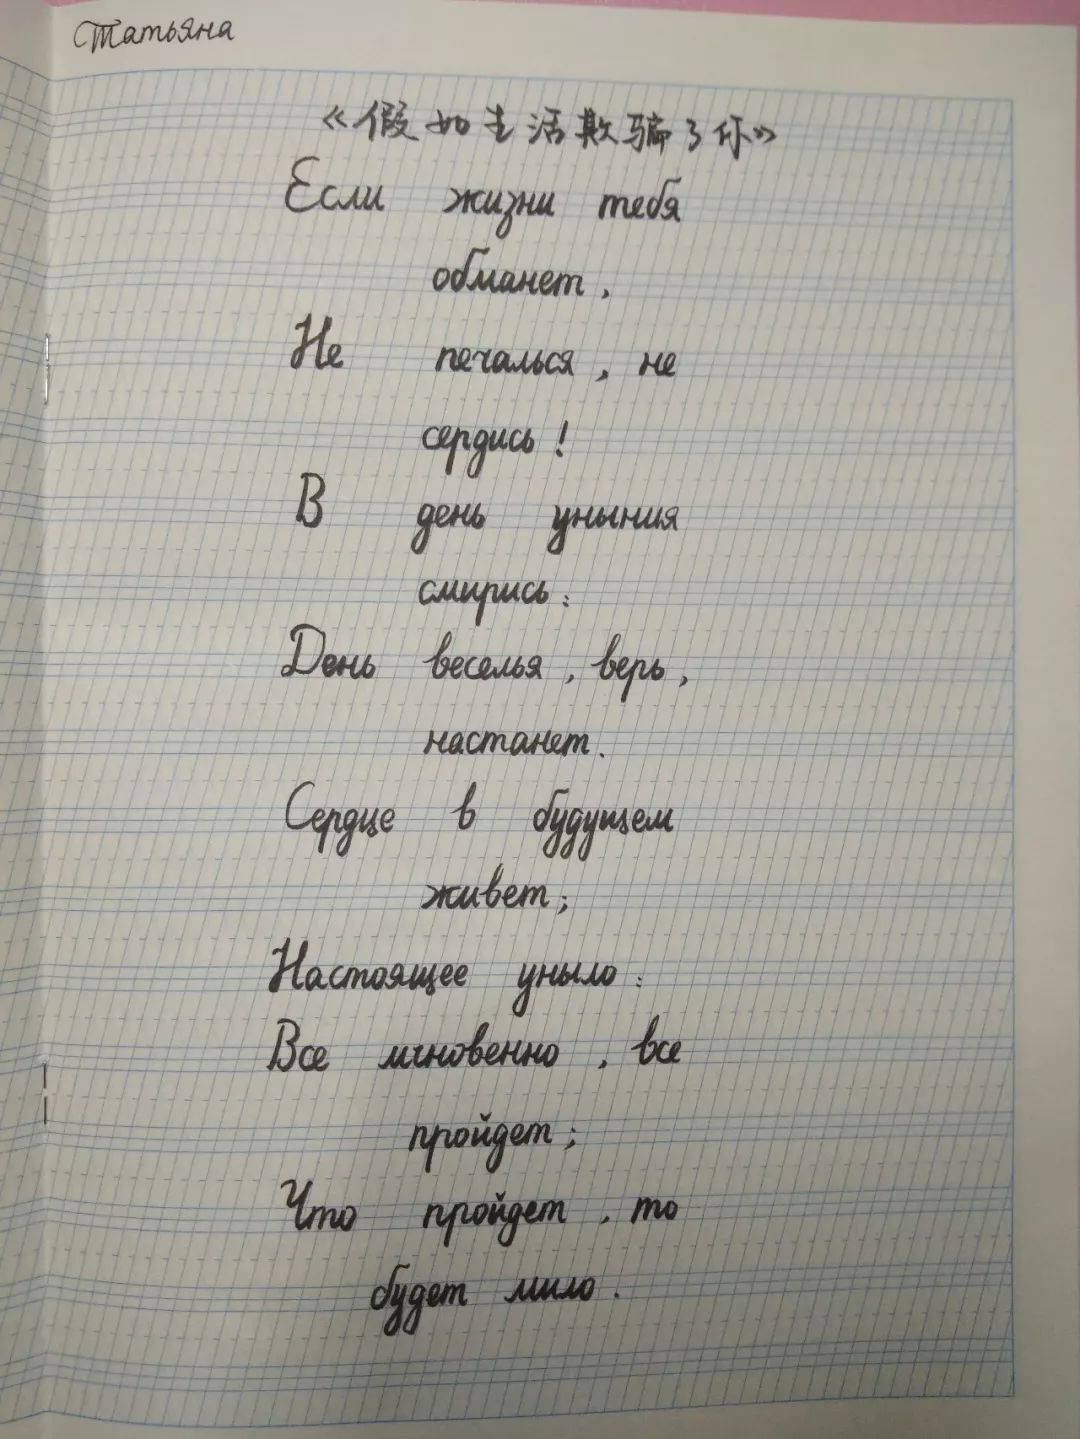 Татьяна
《假如生活欺骗了你》
Если жизни тебя
обманет,
Не печалься, не
сердись!
В день уныния
смирись:
День веселья, верь,
настанет.
Сердце в будущем
живет;
Настоящее уныло:
Все мгновенно, все
пройдет;
Что пройдет, то
будет мило.